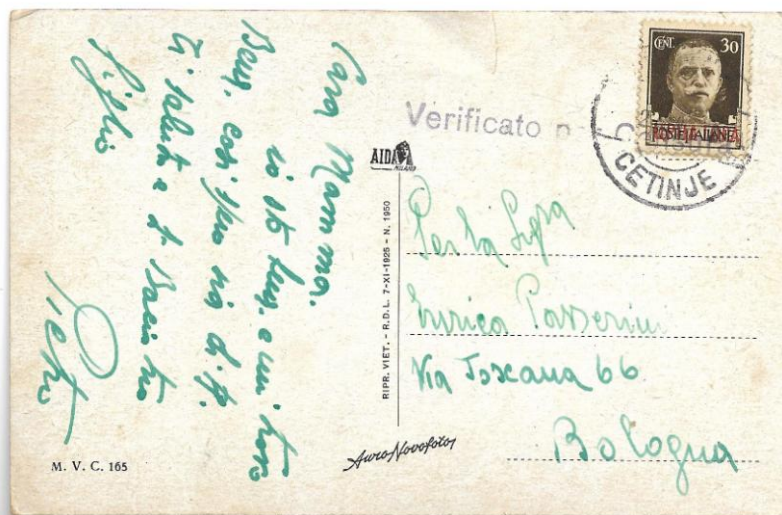 Cara Mamma.
io sto bene, e mi trovo
Bene, così spero sia di te.
ti saluta e ti Bacia tuo
Figlio
Pietro
M. V. C. 165
AIDA
MILANO
RIPR. VIET. - R.D.L. 7-XI-1925 - N. 1950
AuroNovofoto
Verificato p
CENT. 30
POSTE ITALIANE
CETINJE
Enrica Passerini
Via Toscana 66
Bologna